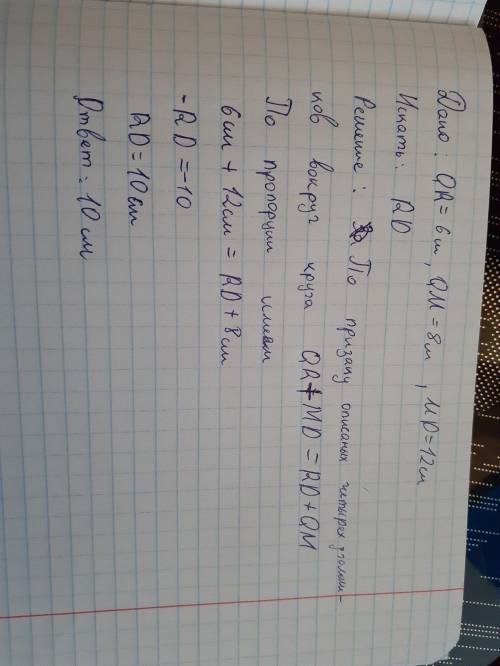 Дано: QR = 6 см, QM = 8 см, MD = 12 см
Искать: RD
Решение: По признаку описаных четырех угольни-
ков вокруг круга QR + MD = RD + QM
По пропорции имеем
6 см + 12 см = RD + 8 см
-RD = -10
RD = 10 см
Ответ: 10 см